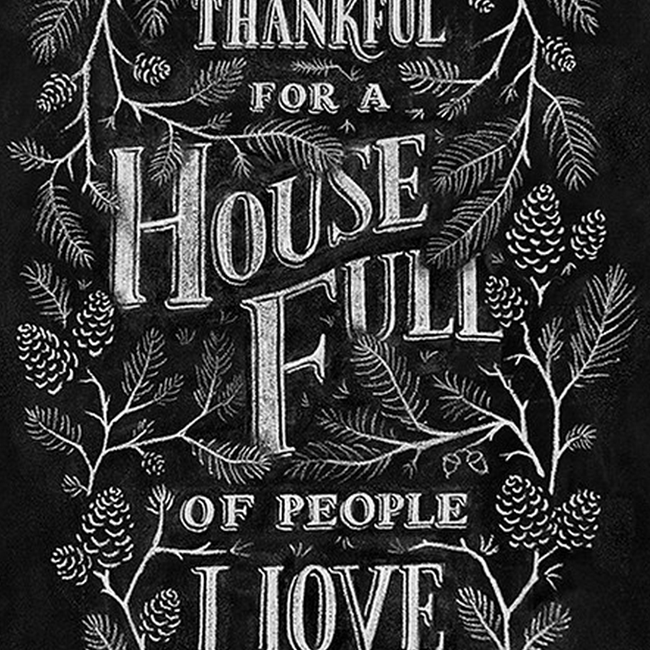 THANKFUL
FOR A
HOUSE
FULL
OF PEOPLE
I LOVE